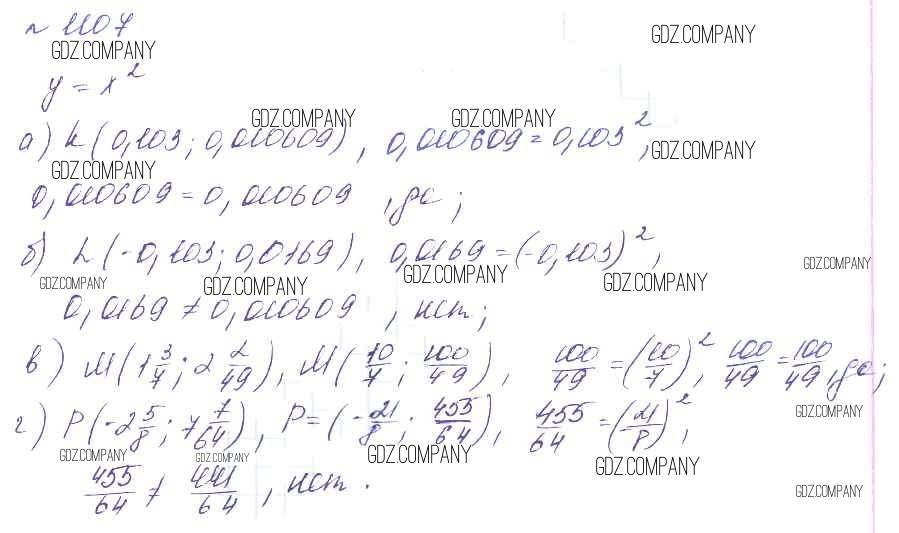 № 1107
GDZ.COMPANY GDZ.COMPANY
y = x²
GDZ.COMPANY GDZ.COMPANY
а) k (0,103; 0,010609), 0,010609 = 0,103²,
GDZ.COMPANY GDZ.COMPANY
0,010609 = 0,010609, да;
б) L (-0,103; 0,0169), 0,0169 = (-0,103)²,
GDZ.COMPANY GDZ.COMPANY GDZ.COMPANY GDZ.COMPANY GDZ.COMPANY
0,0169 ≠ 0,010609, нет;
в) M (1 3/7; 2 2/49), M (10/7; 100/49), 100/49 = (10/7)², 100/49 = 100/49, да;
г) P (-2 5/8; 7 7/64), P = (-21/8; 455/64), 455/64 = (21/8)²,
GDZ.COMPANY
GDZ.COMPANY GDZ.COMPANY GDZ.COMPANY GDZ.COMPANY
455/64 ≠ 441/64, нет.
GDZ.COMPANY